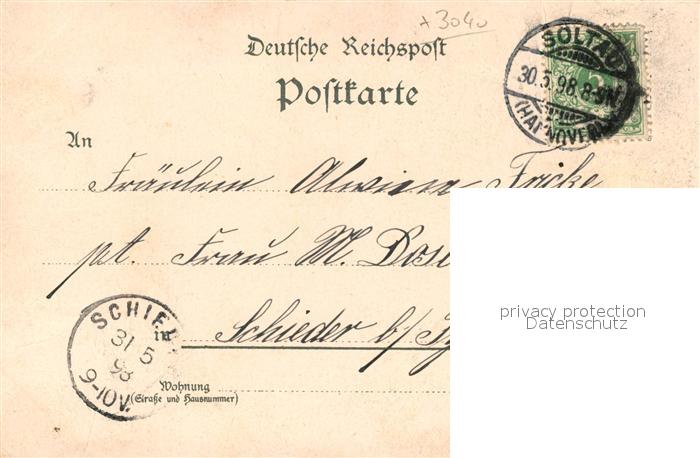 + 3040
Deutsche Reichspost
Postkarte
SOLTAU
30.5.98.8-9N.
(HANNOVER)
5
An
Fräulein Alwine Fricke
pt. Frau M.
Schieder b/
in
SCHIED
31 5
98
9-10V.
Wohnung
(Straße und Hausnummer)
privacy protection
Datenschutz